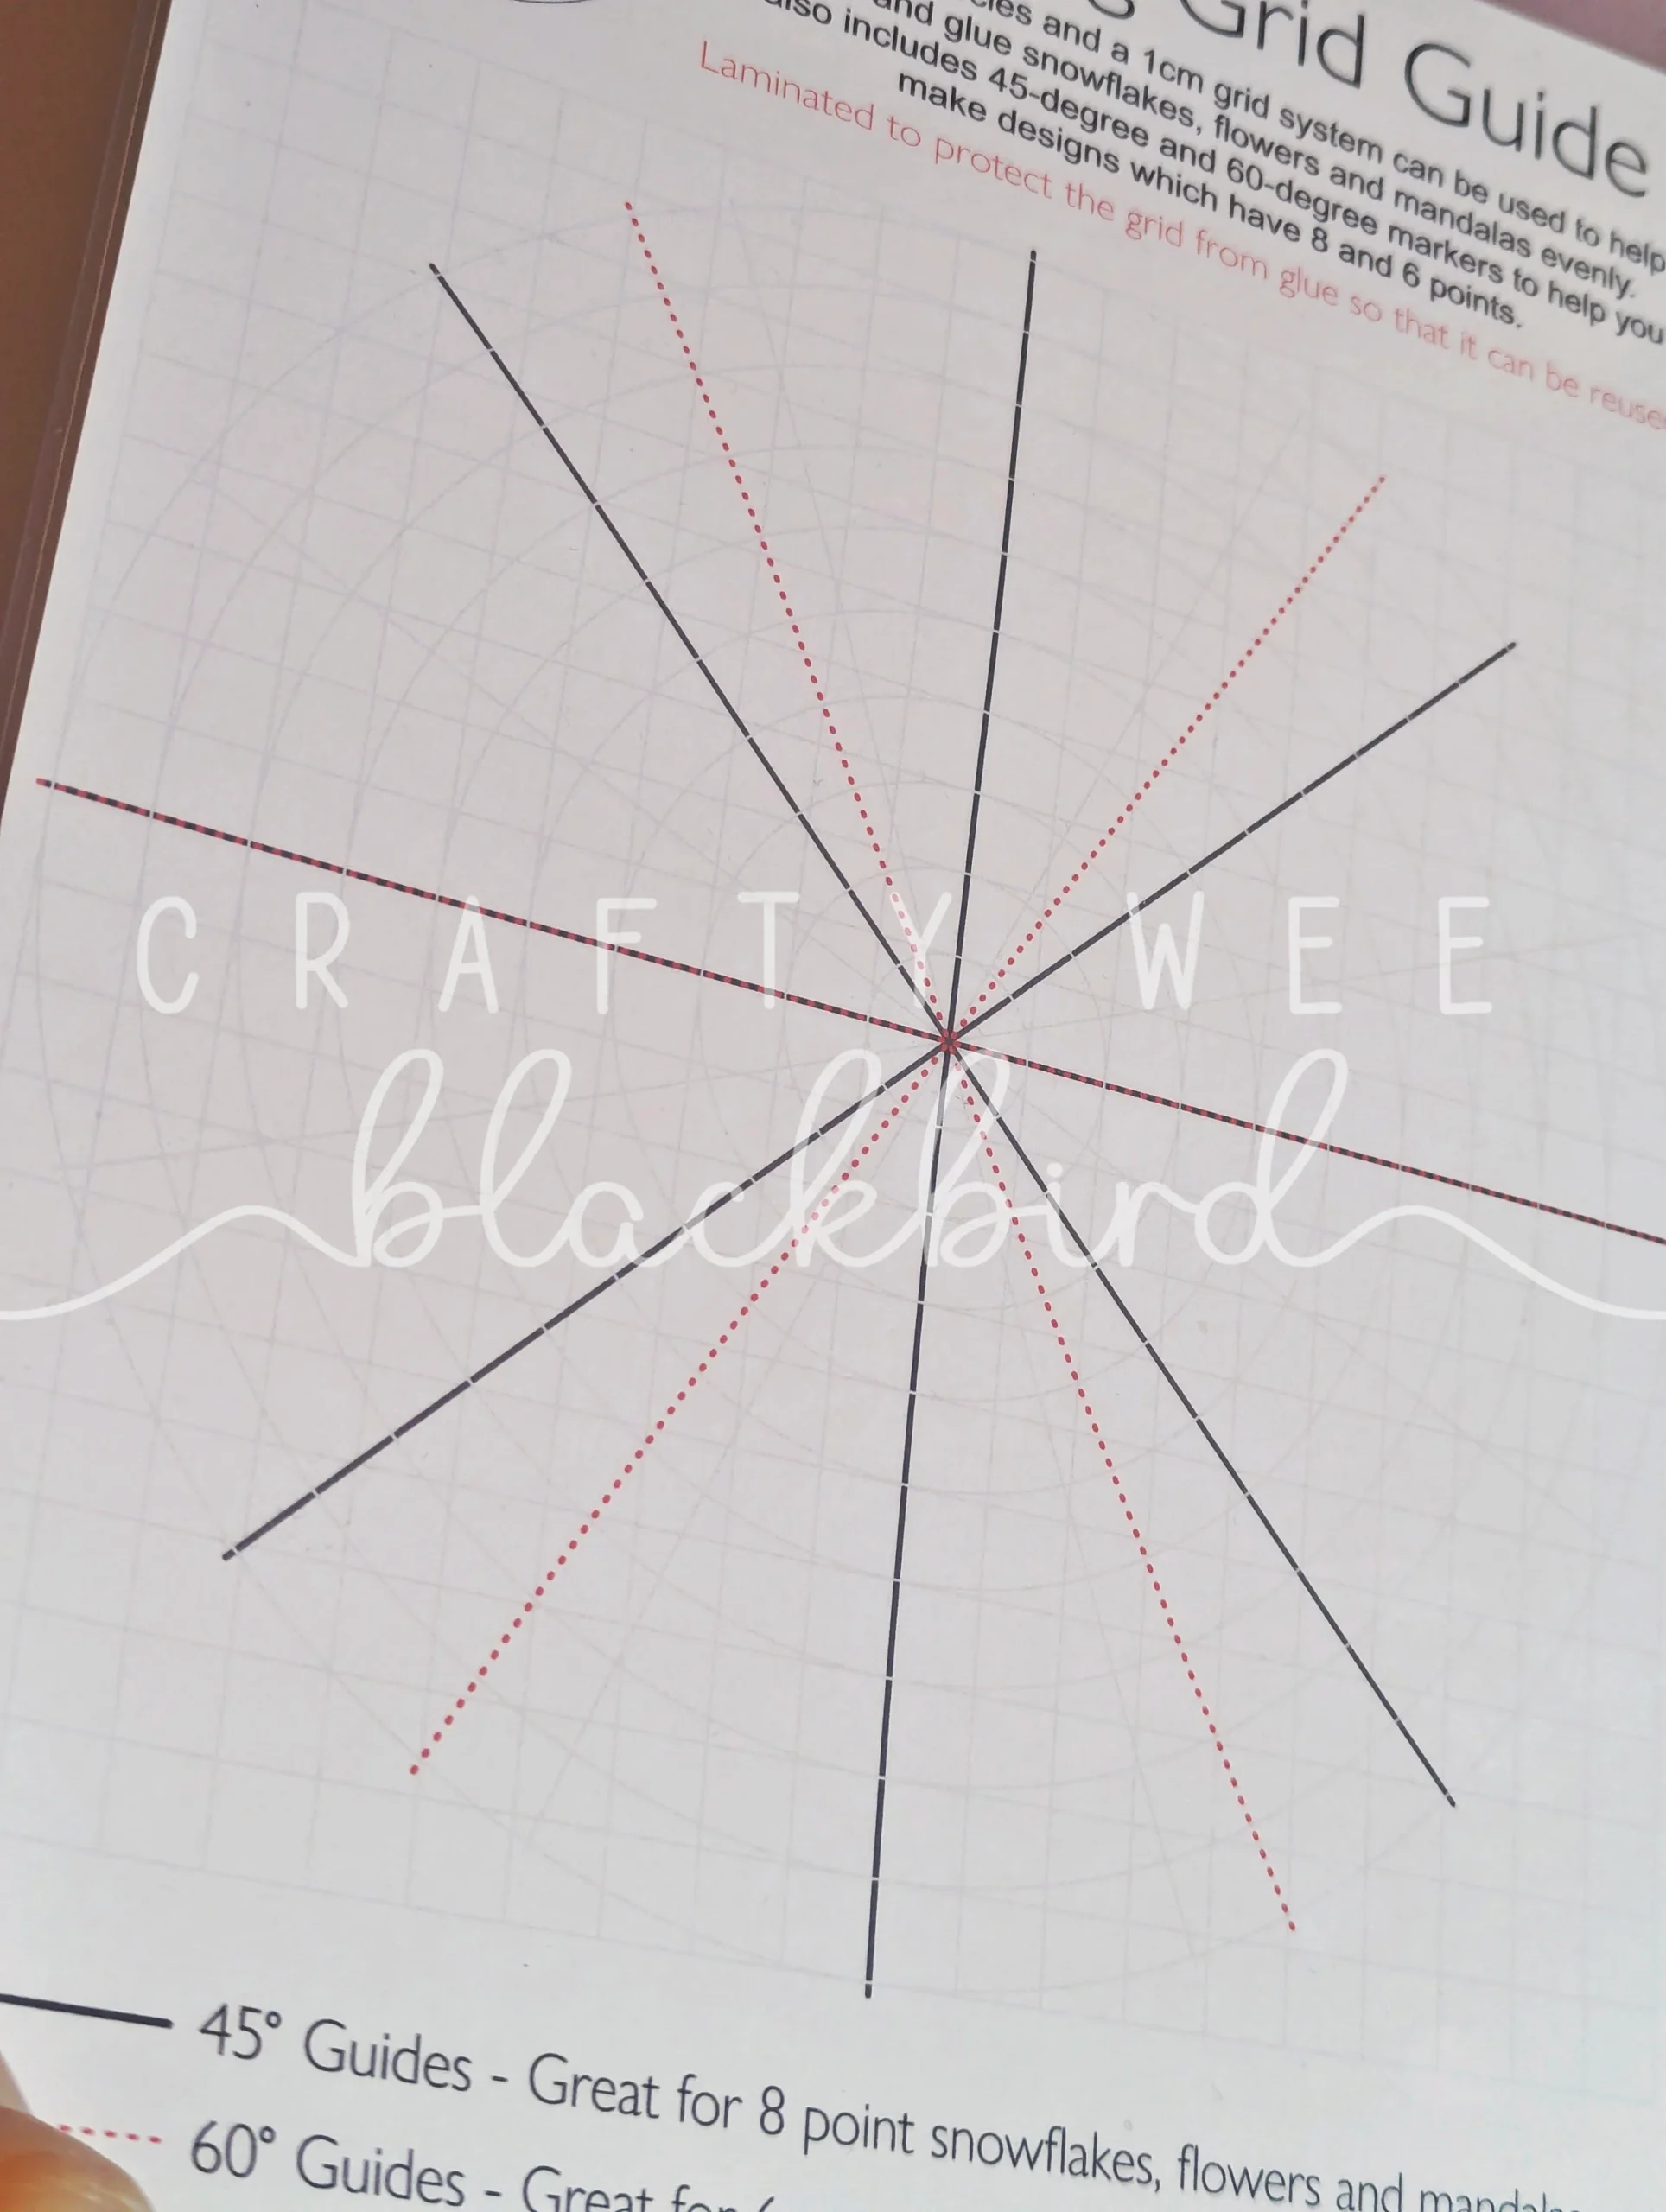 Grid Guide
and a 1cm grid system can be used to help
and glue snowflakes, flowers and mandalas evenly.
also includes 45-degree and 60-degree markers to help you
make designs which have 8 and 6 points.
Laminated to protect the grid from glue so that it can be reuse
CRAFTY WEE
blackbird
45° Guides - Great for 8 point snowflakes, flowers and
60° Guides - Great for